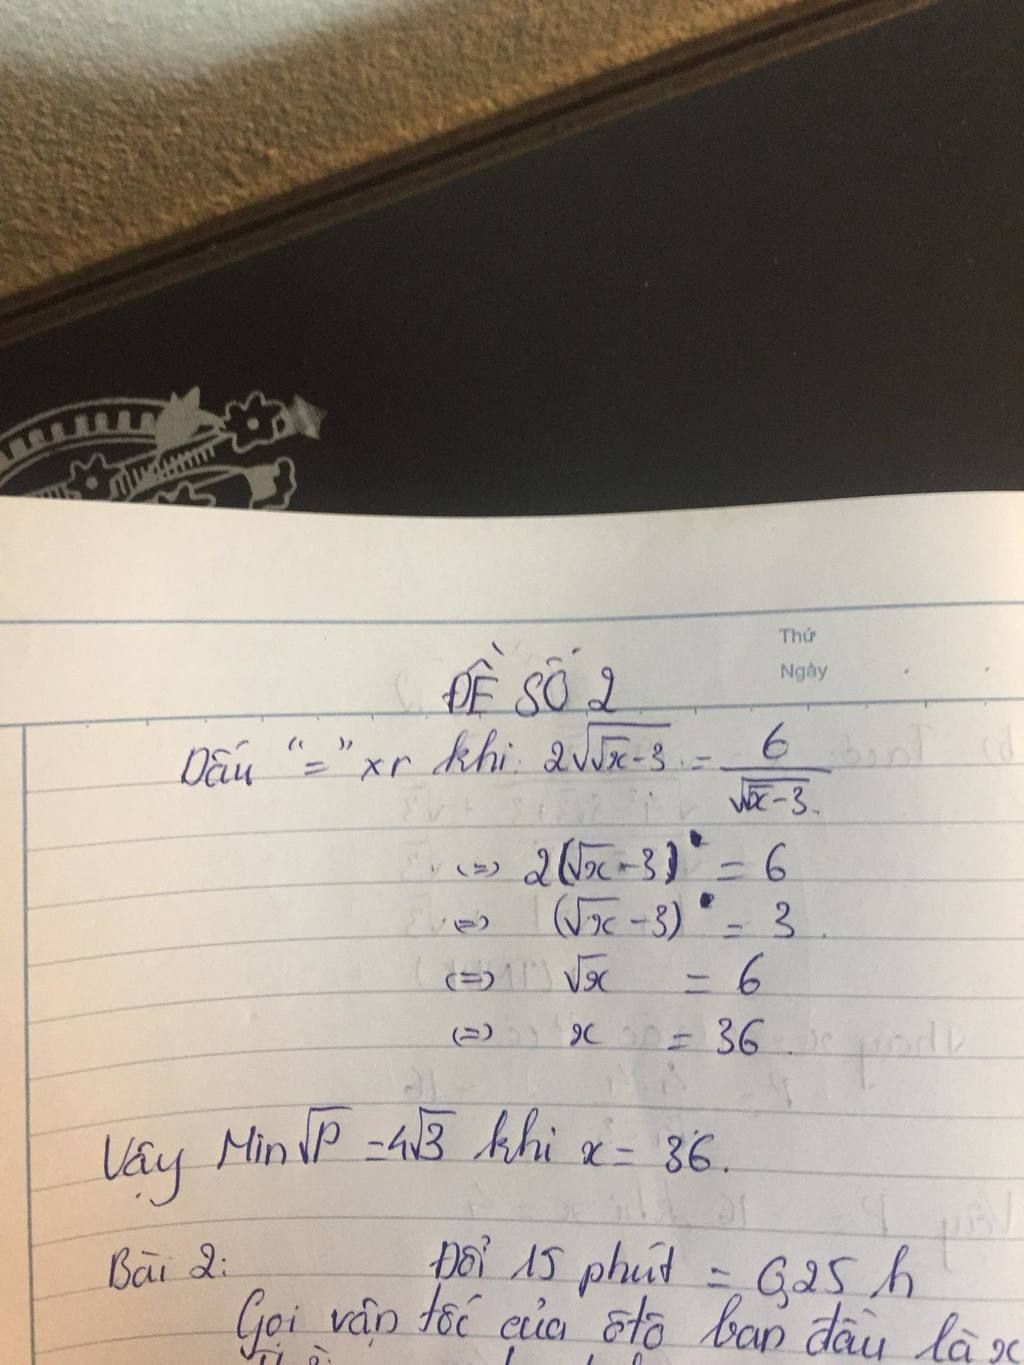 Thứ
Ngày
ĐỀ SỐ 2
Dấu "=" xr khi: 2√(√x-3) = 6/√(√x-3).
(=) 2(√x-3) = 6
(=) (√x-3) = 3.
(=) √x = 6
(=) x = 36.
Vậy Min√P = 4√3 khi x = 36.
Bài 2: Đổi 15 phút = 0,25 h
Gọi vận tốc của ôtô ban đầu là x